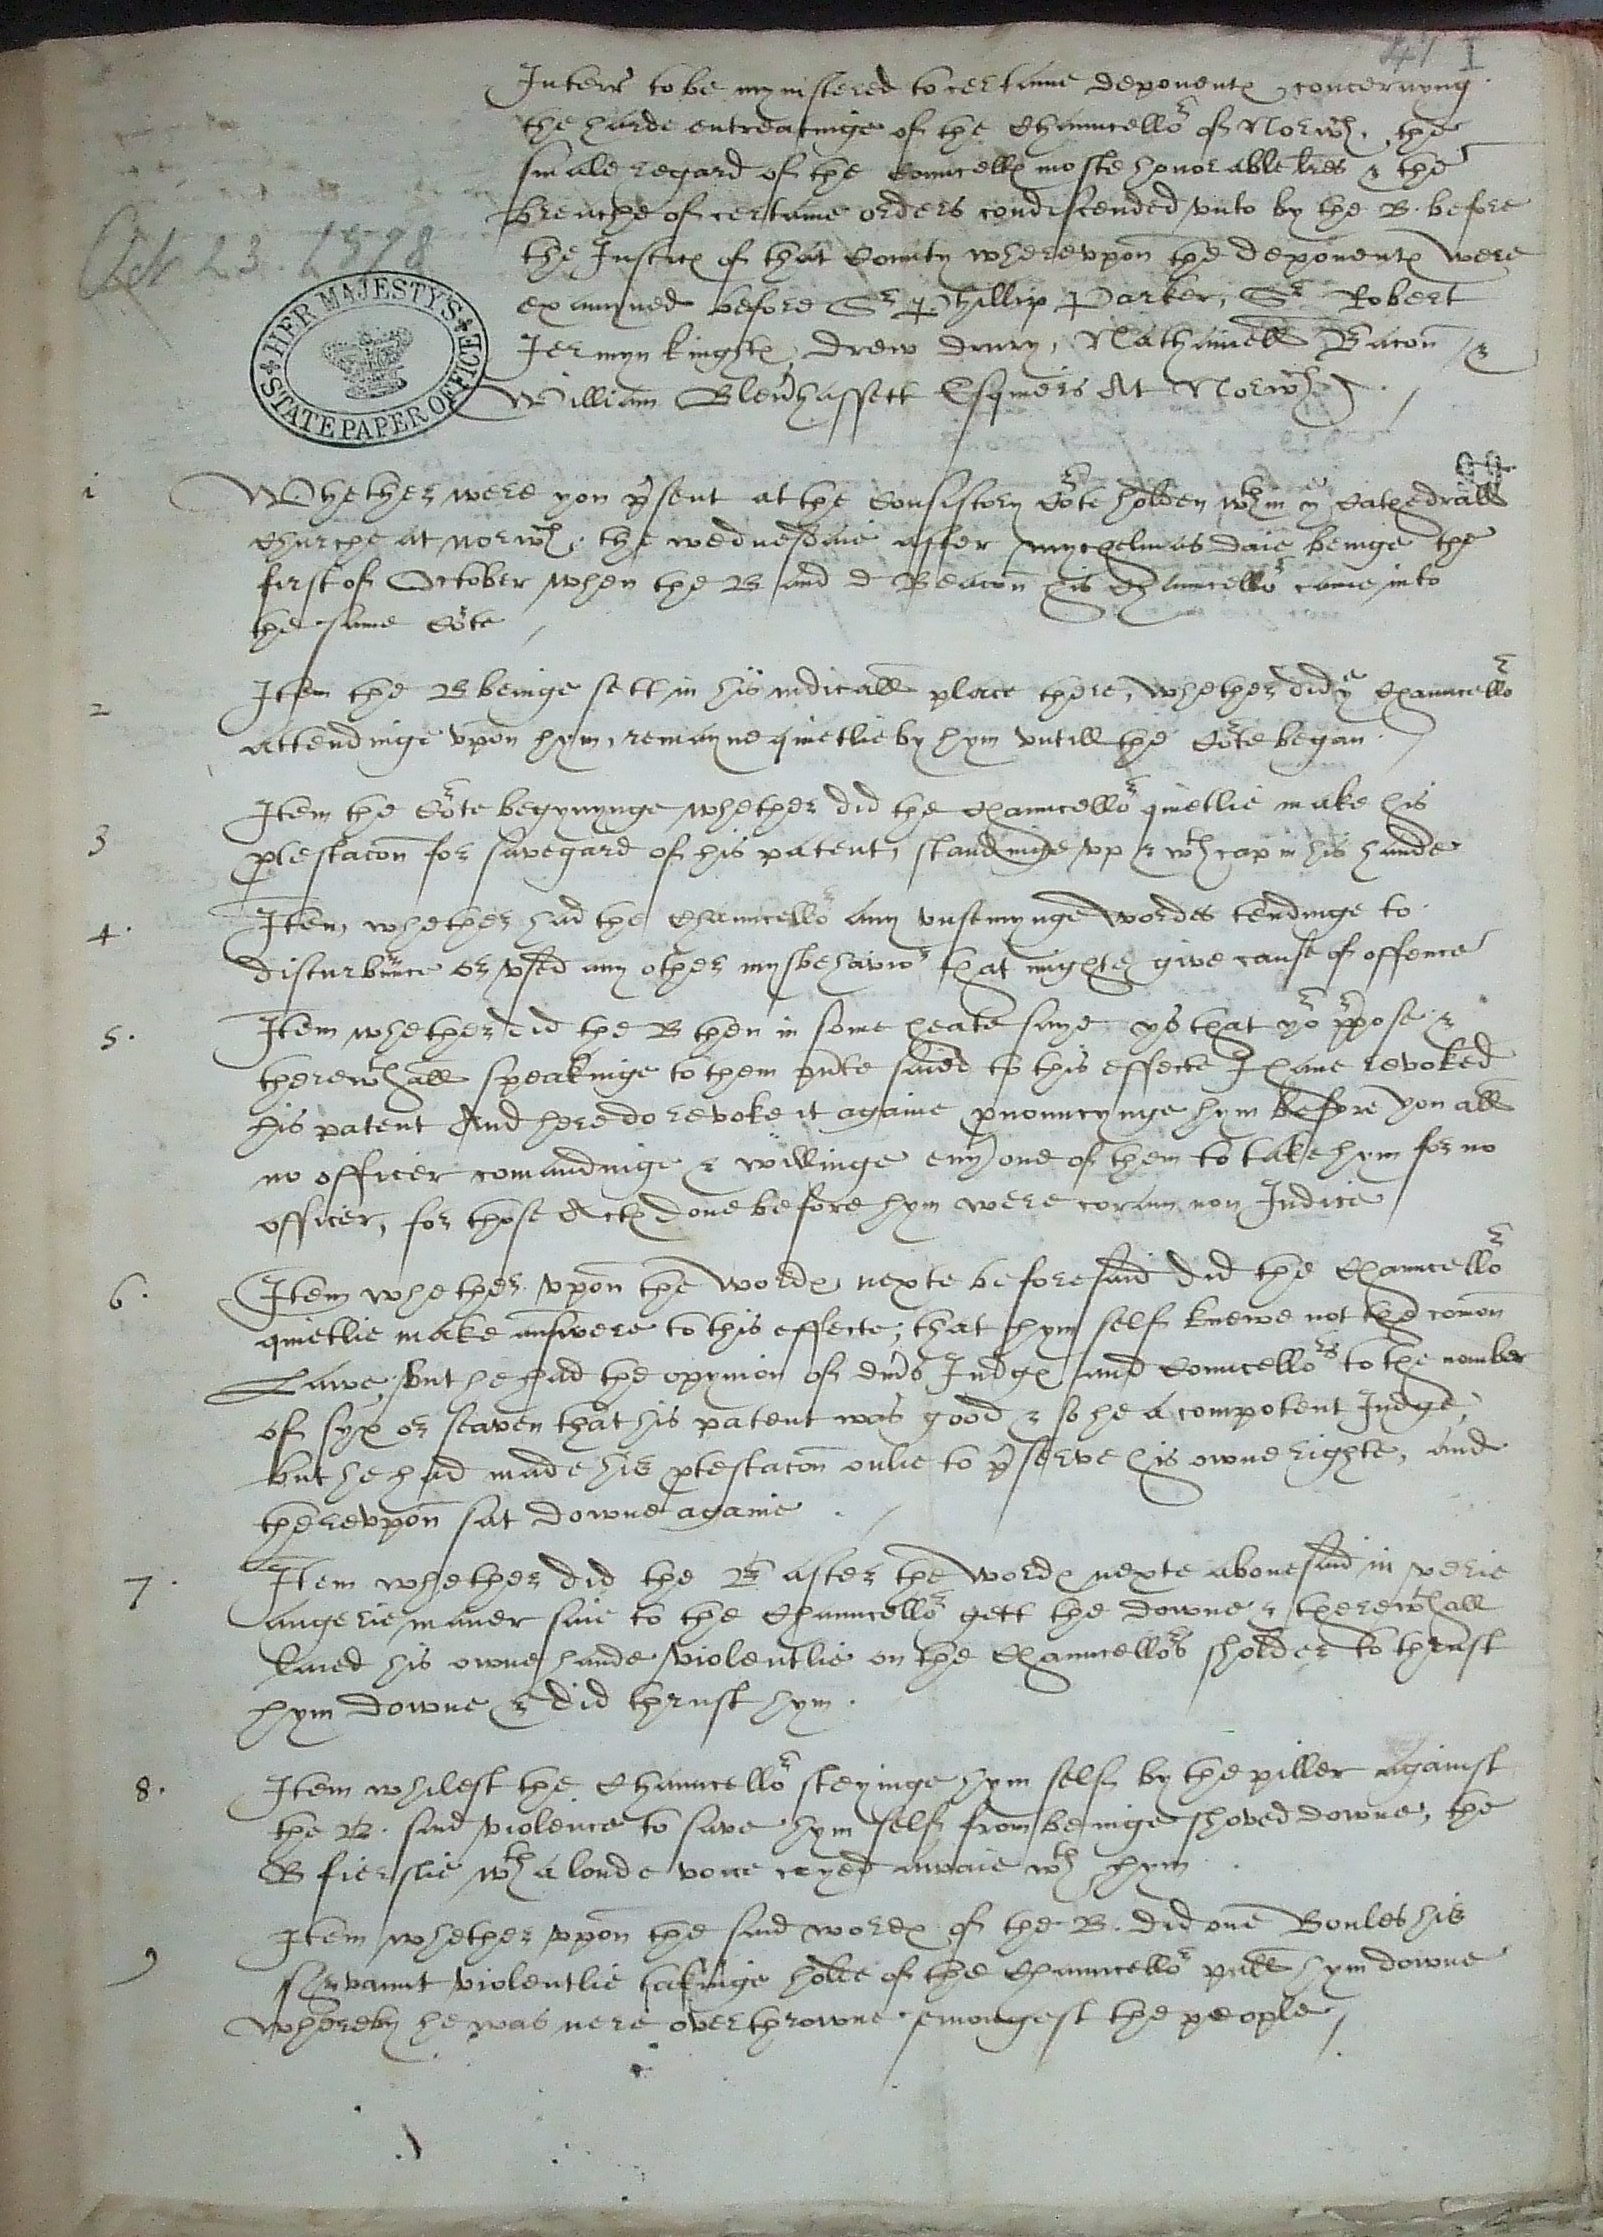 47 I
Interr to be mynistered to certaine deponentes concernyng
the harde entreatinge of the Chauncellor of Norwch, the
smale regard of the Councelles moste honorable lres & the
breache of certaine orders condiscended unto by the B. before
the Justices of that County wherevpon the deponentes were
Oct 23. 1578
examyned before Sr Phillip Parker, Sr Robert
HER MAJESTY'S STATE PAPER OFFICE
Jermyn knightes, Drew Drury, Nathaniell Bacon &
William Blenhassett Esquiers At Norwch
1 Whether were you psent at the Consistory Corte holden wthin ye Cathedrall
Churche at norwch, the wednesdaie after mychelmas daie beinge the
first of October when the B and d Beacon his Chauncellor came into
the same Corte
2 Item the B beinge sett in his iudicall place there, whether did ye Chauncellor
attendinge vpon hym, remayne quietlie by hym vntill the Corte began
3 Item the Corte begynnynge whether did the Chauncellor quietlie make his
ptestacon for savegard of his patent, standinge vp & wth cap in his hande
4. Item, whether had the Chauncellor any vnseemynge wordes tendinge to
disturbunce or vsed any other mysbehavior that mighte give cause of offence
5. Item whether did the B then in some heate saye, ys that yor ppose &
therewthall speakinge to them pnte saied to this effecte I haue revoked
his patent And here do revoke it againe pnouncynge hym before you all
no officer comandinge & willinge euy one of them to take hym for no
officer, for those Actes done before hym were coram non Judice
6. Item whether vpon the wordes nexte beforesaid did the Chauncellor
quietlie make answere to this effecte, that hym self knewe not the comon
Lawe, but he had the opynion of dius Judges and Councellors to the nomber
of syx or seaven that his patent was good & so he a competent Judge,
but he had made his ptestacon onlie to pserve his owne righte, and
therevpon sat downe againe
7. Item whether did the B after the wordes nexte abouesaid in verie
angerie maner saie to the Chauncellor gett the downe & therewthall
laied his owne hande violentlie on the Chauncellors sholder to thrust
hym downe & did thrust hym.
8. Item whilest the Chauncellor steyinge hym self by the piller against
the B. said violence to save hym self from beinge shoved downe, the
B fierslie wth a loude voice cryed awaie wth hym
9 Item whether vpon the said wordes of the B. did one Boules his
srvaunt violentlie takinge holde of the Chauncellor pull hym downe
whereby he was nere overthrowne emongest the people